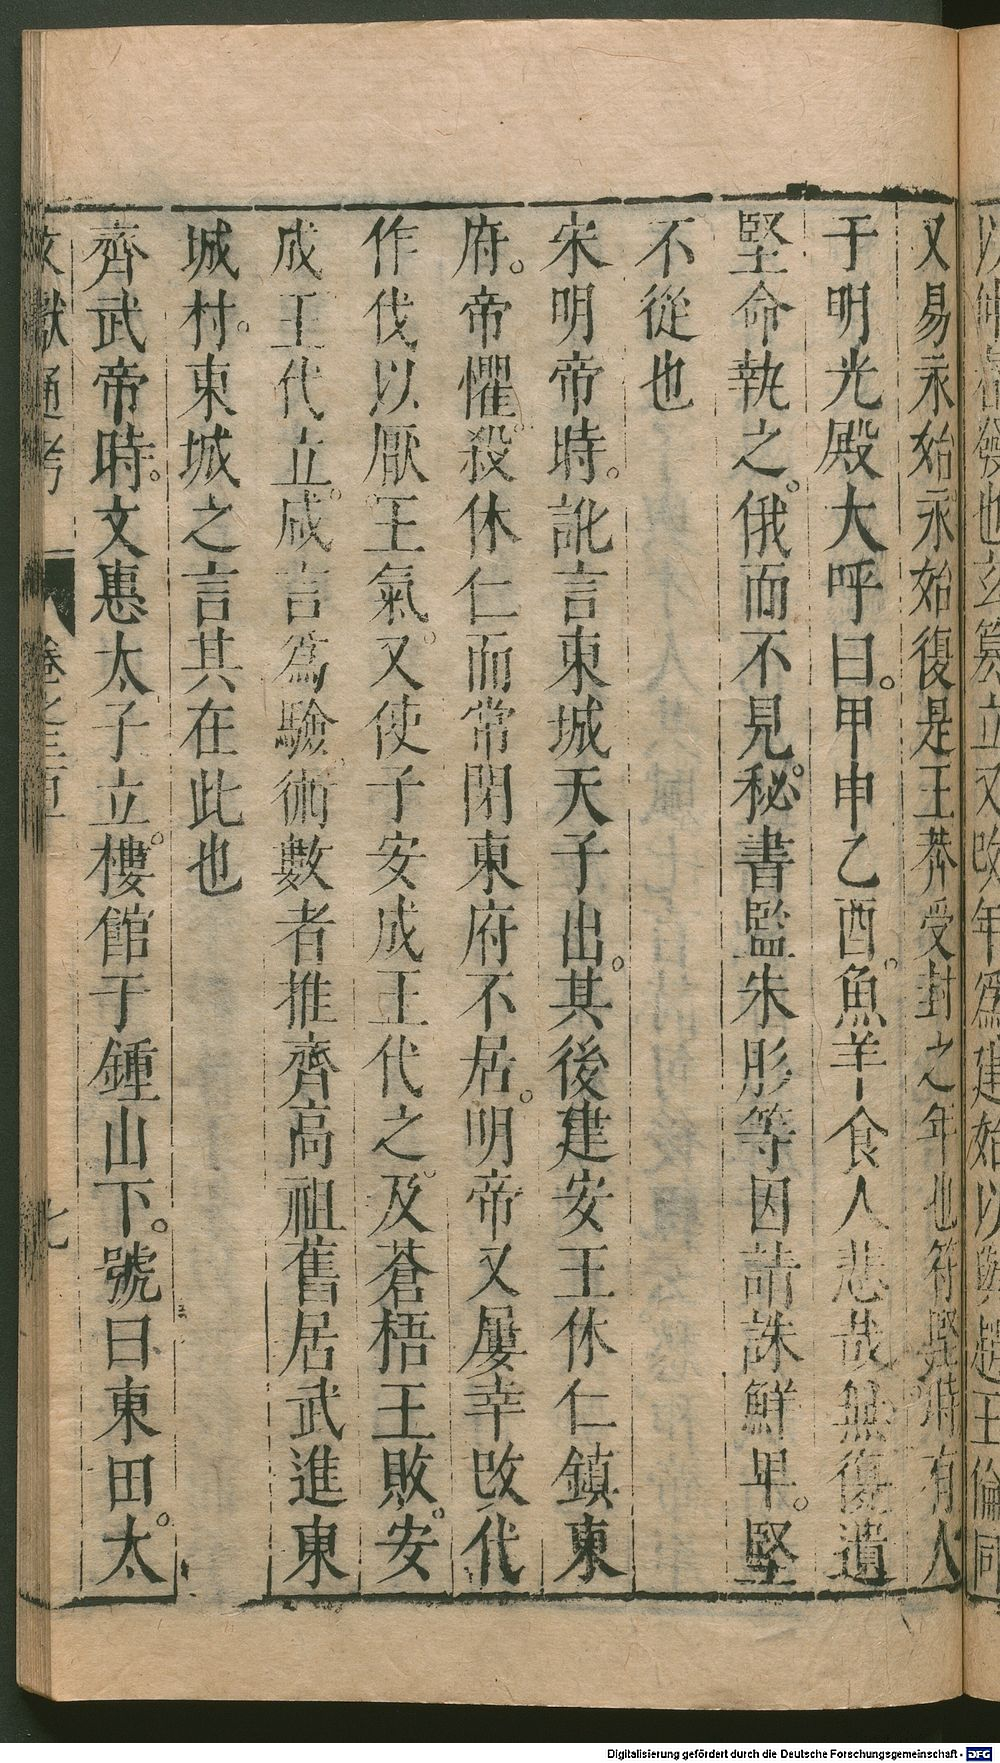 又易永始永始復是王莽受封之年也符堅時有人
于明光殿大呼曰。甲申乙酉。魚羊食人悲哉無復遺
堅命執之。俄而不見。秘書監朱肜等因請誅鮮卑。堅
不從也
宋明帝時。訛言東城天子出。其後建安王休仁鎮東
府。帝懼。殺休仁而常閉東府不居。明帝又屢幸改代
作伐以厭王氣。又使子安成王代之。及蒼梧王敗。安
成王代立。咸言為驗。術數者推齊高祖舊居武進東
城村。東城之言其在此也
齊武帝時。文惠太子立。樓館于鍾山下。號曰東田。太
文獻通考
七
Digitalisierung gefördert durch die Deutsche Forschungsgemeinschaft - DFG